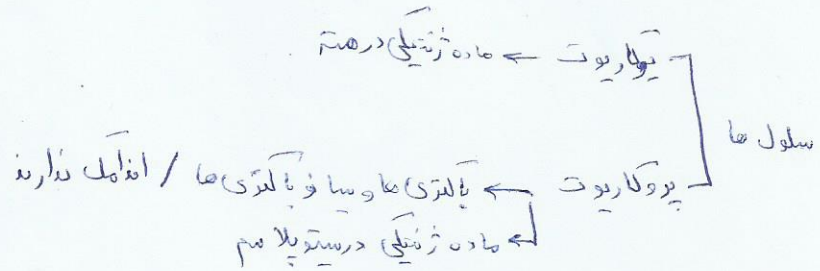 یوکاریوت ← ماده ژنتیکی در هسته
سلول ها
پروکاریوت ← باکتری ها و سیانوباکتری ها / اندامک ندارند
← ماده ژنتیکی در سیتوپلاسم